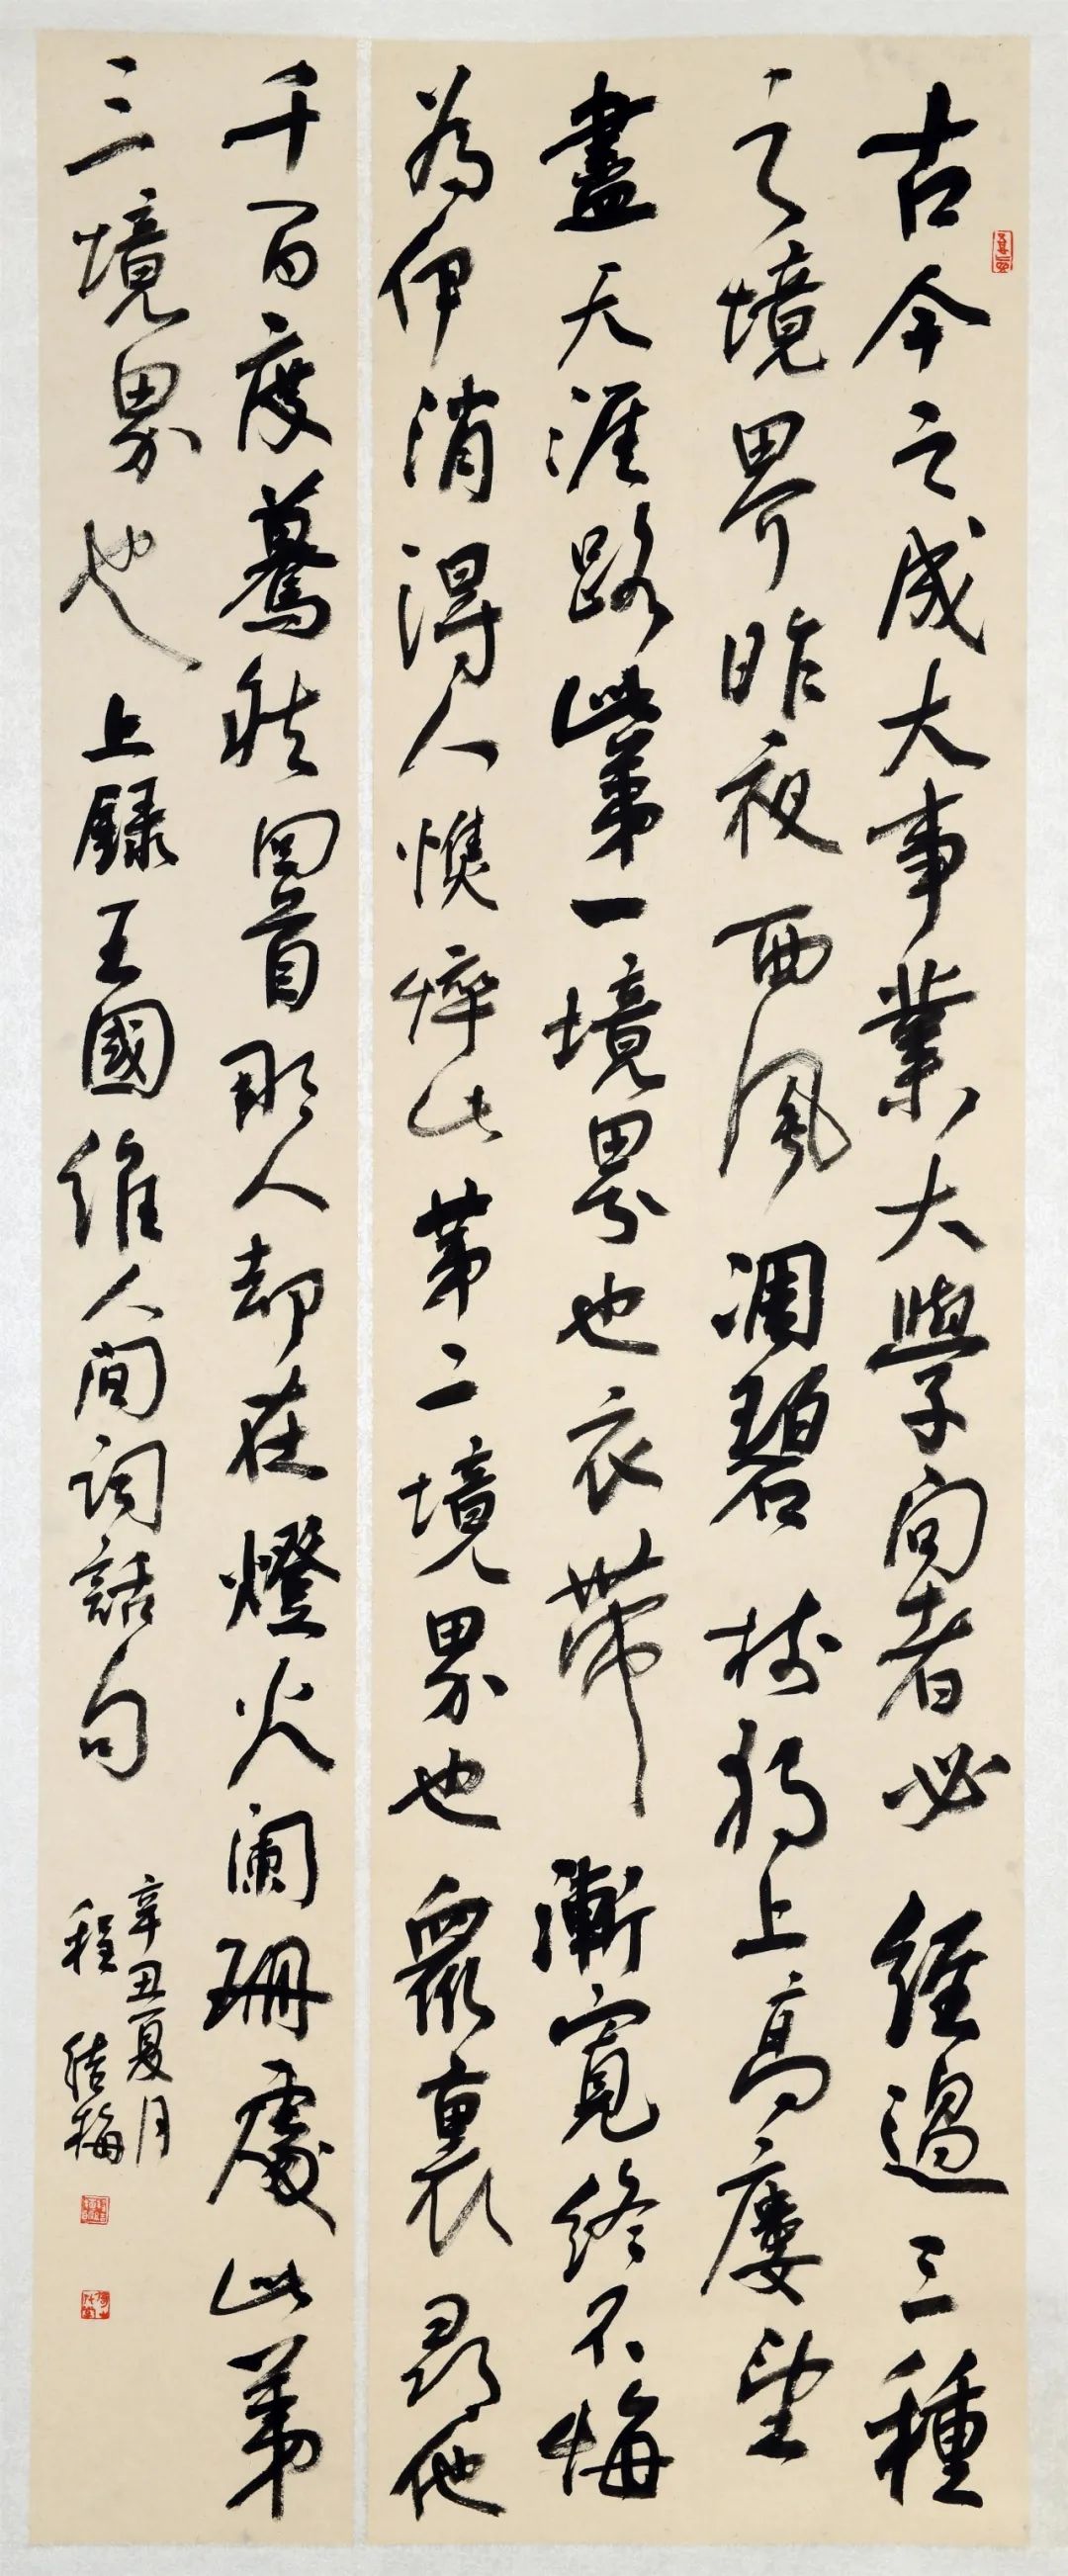 古今之成大事業大學问者必經過三種
之境界昨夜西風凋碧樹獨上高廔望
盡天涯路此第一境界也衣帶漸寬終不悔
為伊消得人憔悴此第二境界也衆裏尋他
千百度驀然回首那人却在燈火闌珊處此第
三境界也上録王國維人间词話句
辛丑夏月
程結梅